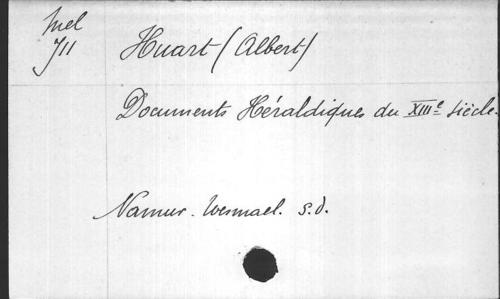 Mel
711
Huart (Albert)
Documents Héraldiques du XIIIe Siècle.
Namur. Wesmael. s.d.